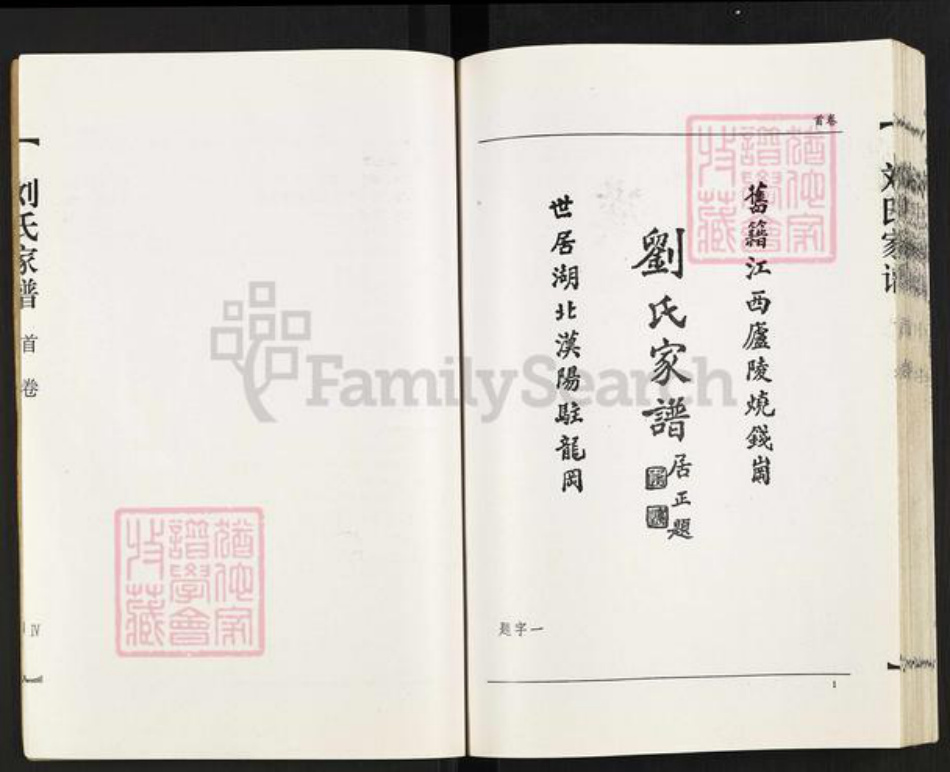 刘氏家谱 首卷
IV
卷首
舊籍江西廬陵燒錢崗
劉氏家譜
居正題
世居湖北漢陽駐龍岡
题字一
1
猶他家
譜學會
收藏
猶他家
譜學會
收藏
FamilySearch
刘氏家谱